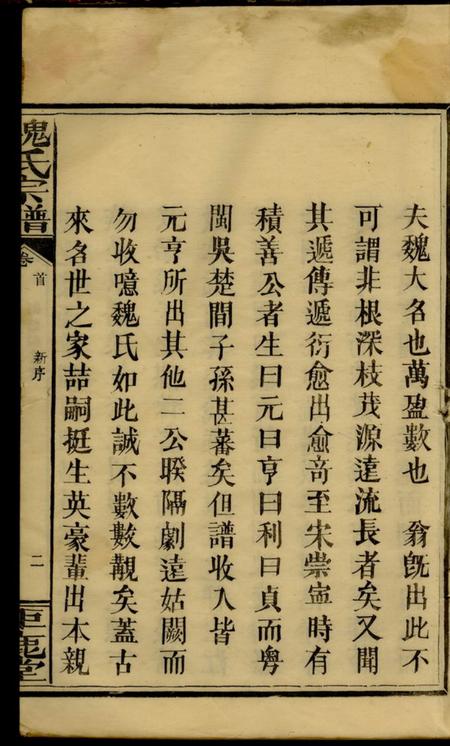 夫魏大名也萬盈數也　翁旣出此不
可謂非根深枝茂源遠流長者矣又聞
其遞傳遞衍愈出愈竒至宋崇寍時有
積善公者生曰元曰亨曰利曰貞而粤
閩吳楚間子孫甚蕃矣但譜收入皆
元亨所出其他二公暌隔劇遠姑闕而
勿收噫魏氏如此誠不數數覯矣蓋古
來名世之家喆嗣挺生英豪輩出本親
魏氏宗譜
卷首
新序
二
鉅鹿堂